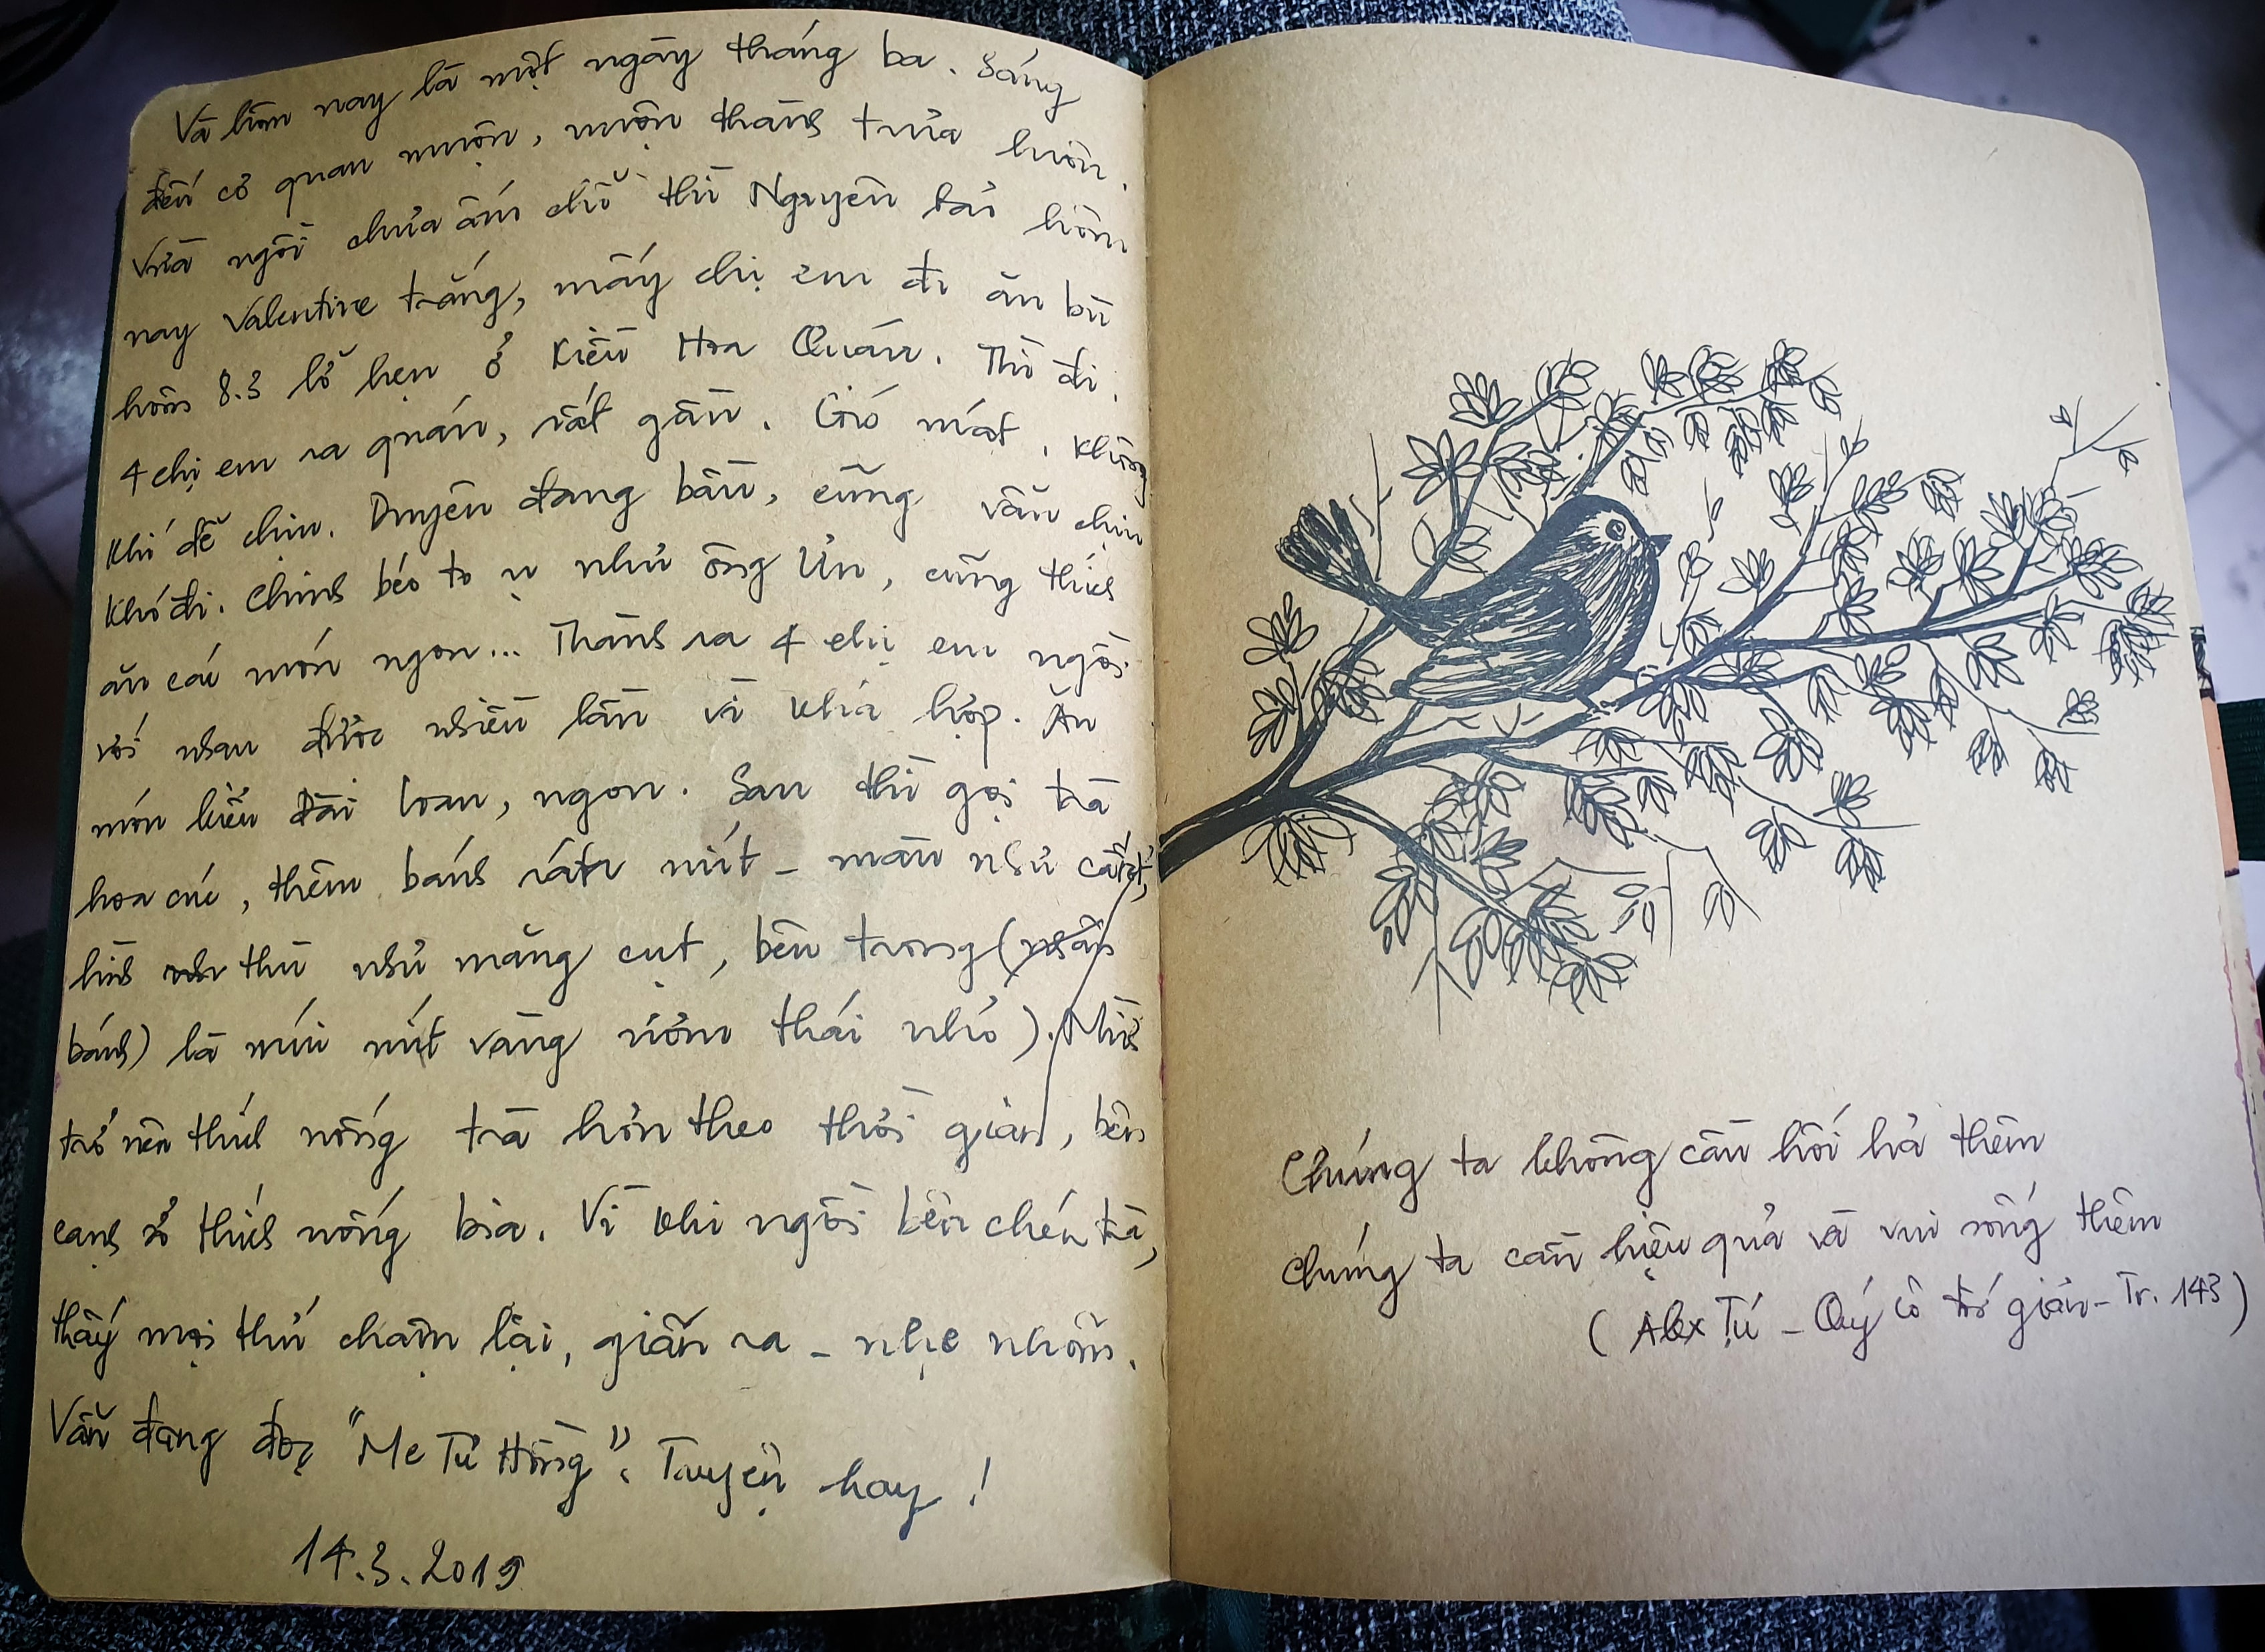 Và hôm nay là một ngày tháng ba. Sáng
đến cơ quan muộn, muộn thành trưa luôn.
Vừa ngồi chưa ấm chỗ thì Nguyên bảo hôm
nay Valentine trắng, mấy chị em đi ăn bù
hôm 8.3 lỡ hẹn ở Kiều Hoa Quán. Thì đi.
4 chị em ra quán, rất gần. Gió mát. Không
khí dễ chịu. Duyên đang bầu, cũng vẫn chịu
khó đi. Chinh béo to ụ như ông Ủn, cũng thích
ăn các món ngon... Thành ra 4 chị em ngồi
với nhau được nhiều lần vì khá hợp. Ăn
món kiểu Đài Loan, ngon. Sau thì gọi trà
hoa cúc, thêm bánh mít - màu như cà rốt,
hình thù như măng cụt, bên trong (nhân
bánh) là múi mít vàng ươm thái nhỏ). Mình
trở nên thích nóng trà hơn theo thời gian, bên
cạnh sở thích nóng bia. Vì khi ngồi bên chén trà,
thấy mọi thứ chậm lại, giãn ra - nhẹ nhõm.
Vẫn đang đọc "Me Tư Hồng". Truyện hay!
14.3.2019
Chúng ta không cần hối hả thêm
chúng ta cần hiệu quả và vui sống thêm
(Alex Tú - Quý cô tối giản - Tr. 143)